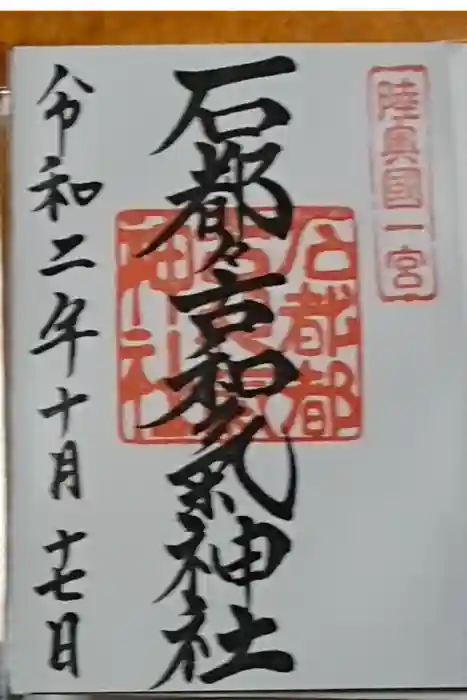 陸奥國一宮
石都々古和氣神社
石都都
神社
令和二年十月十七日